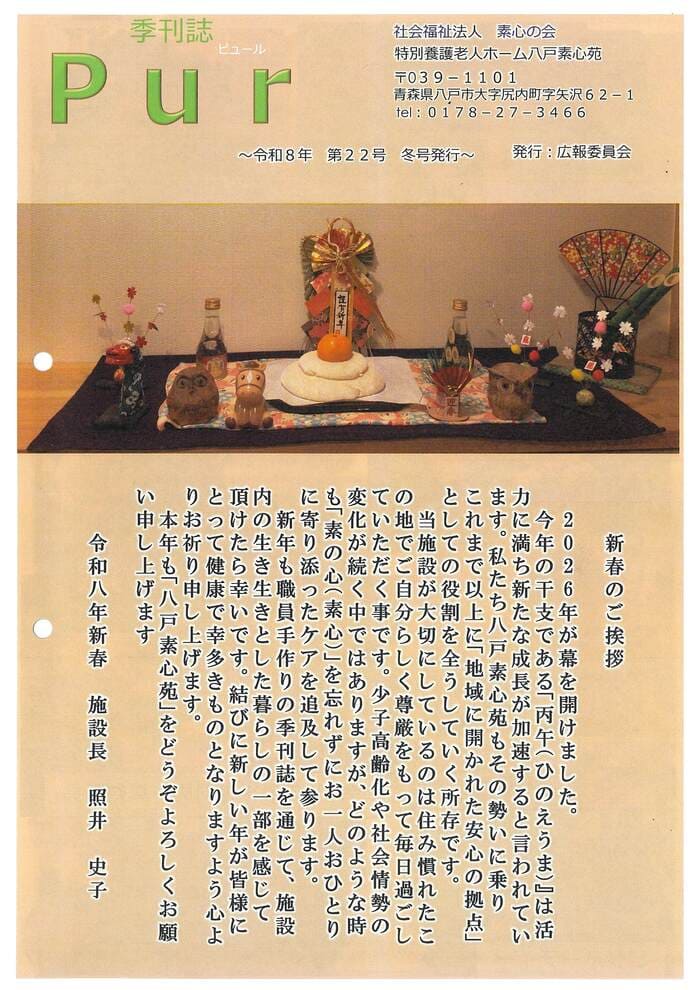 季刊誌
ピュール
Pur
社会福祉法人　素心の会
特別養護老人ホーム八戸素心苑
〒039－1101
青森県八戸市大字尻内町字矢沢62－1
tel：0178－27－3466
～令和8年　第22号　冬号発行～
発行：広報委員会
謹賀新年
新春のご挨拶
2026年が幕を開けました。
今年の干支である「丙午(ひのえうま)』は活
力に満ち新たな成長が加速すると言われてい
ます。私たち八戸素心苑もその勢いに乗り
これまで以上に「地域に開かれた安心の拠点」
としての役割を全うしていく所存です。
当施設が大切にしているのは住み慣れたこ
の地でご自分らしく尊厳をもって毎日過ごし
ていただく事です。少子高齢化や社会情勢の
変化が続く中ではありますが、どのような時
も「素の心(素心)」を忘れずにお一人おひとり
に寄り添ったケアを追及して参ります。
新年も職員手作りの季刊誌を通じて、施設
内の生き生きとした暮らしの一部を感じて
頂けたら幸いです。結びに新しい年が皆様に
とって健康で幸多きものとなりますよう心よ
りお祈り申し上げます。
本年も「八戸素心苑」をどうぞよろしくお願
い申し上げます
令和八年新春　施設長　照井　史子